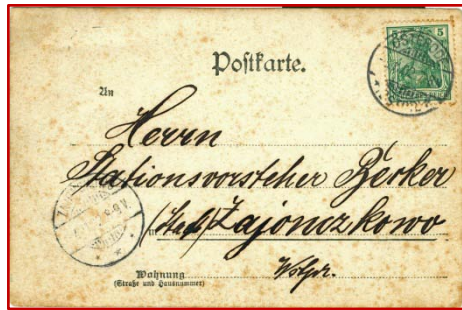 Postkarte.
5
An
Herrn
Stationsvorsteher Becker
Zajonczkowo
Wstpr.
Wohnung
(Straße und Hausnummer)